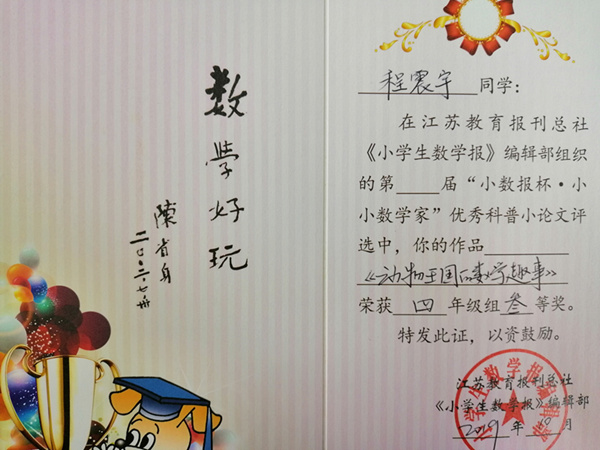 数学好玩
陈省身
二〇〇二·七
程震宇同学：
在江苏教育报刊总社
《小学生数学报》编辑部组织
的第____届“小数报杯·小
小数学家”优秀科普小论文评
选中，你的作品
《动物王国的数学趣事》
荣获 四 年级组 叁 等奖。
特发此证，以资鼓励。
江苏教育报刊总社
《小学生数学报》编辑部
2019 年 10 月